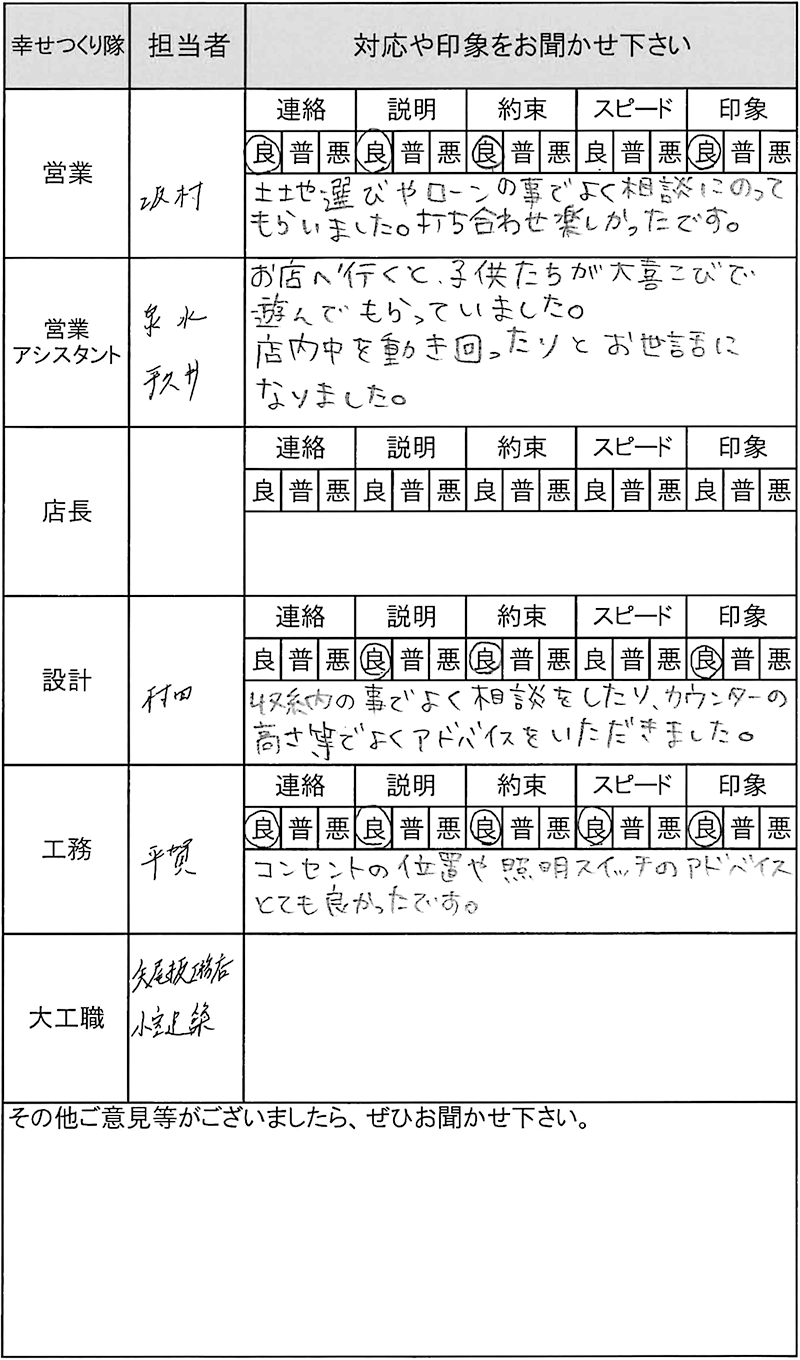 幸せつくり隊 担当者 対応や印象をお聞かせ下さい
連絡 説明 約束 スピード 印象
良 普 悪 良 普 悪 良 普 悪 良 普 悪 良 普 悪
営業
坂村
土地選びやローンの事でよく相談にのって
もらいました。打ち合わせ楽しかったです。
営業
アシスタント
泉水
平久井
お店へ行くと、子供たちが大喜こびで
遊んでもらっていました。
店内中を動き回ったりとお世話に
なりました。
連絡 説明 約束 スピード 印象
良 普 悪 良 普 悪 良 普 悪 良 普 悪 良 普 悪
店長
連絡 説明 約束 スピード 印象
良 普 悪 良 普 悪 良 普 悪 良 普 悪 良 普 悪
設計
村田
収納の事でよく相談をしたり、カウンターの
高さ等でよくアドバイスをいただきました。
連絡 説明 約束 スピード 印象
良 普 悪 良 普 悪 良 普 悪 良 普 悪 良 普 悪
工務
平賀
コンセントの位置や照明スイッチのアドバイス
とても良かったです。
大工職
工務店
小室建築
その他ご意見等がございましたら、ぜひお聞かせ下さい。